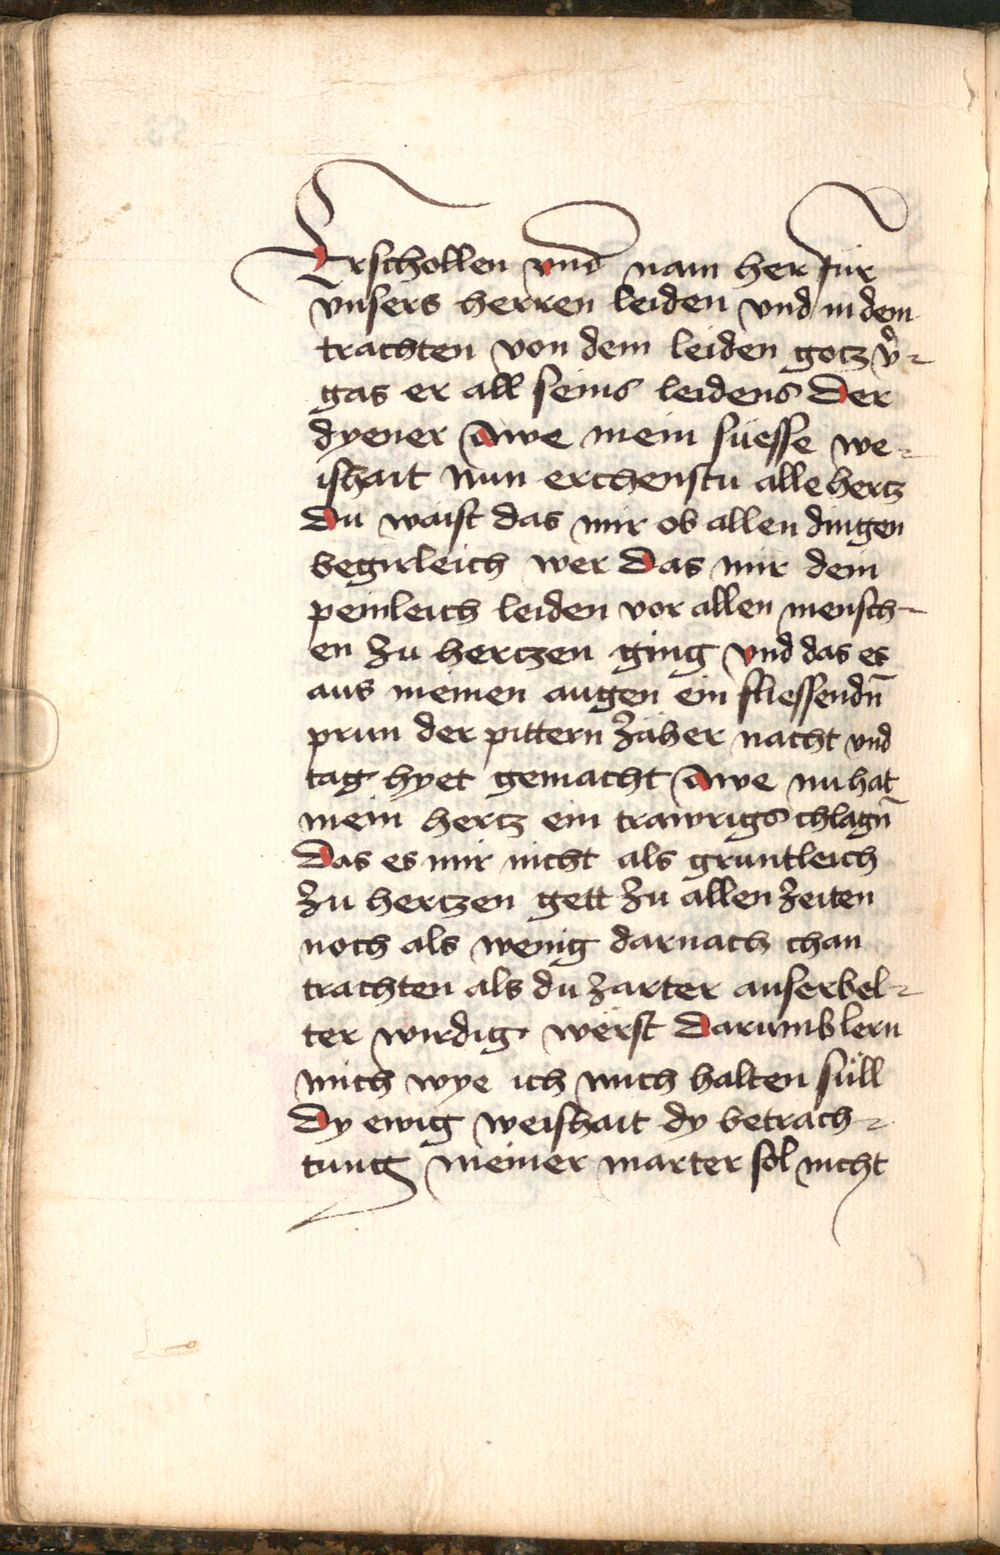 Erschollen vnd nam her für
vnsers herren leiden vnd in dem
trachten von dem leiden gotz v̉-
gas er all seins leidens Der
dyener Awe mein süesse we-
ishait Nun erchenstu alle hertz
Du waist das mir ob allen dingen
begirleich wer Das mir dein
peinleich leiden vor allen mensch-
en zu hertzen ging vnd das es
aus meinen augen ein fliessendn̄
prun der pittern zäher nacht vnd
tag hyet gemacht Awe nu hat
mein hertz ein trawrigs chlagn̄
Das es mir nicht als gruntleich
zu hertzen gett zu allen zeiten
noch als wenig darnach chan
trachten als du zarter auserbel-
ter wirdig werst Darumb lern
mich wye ich mich halten süll
Dy ewig weishait dy betrach-
tung meiner marter sol nicht